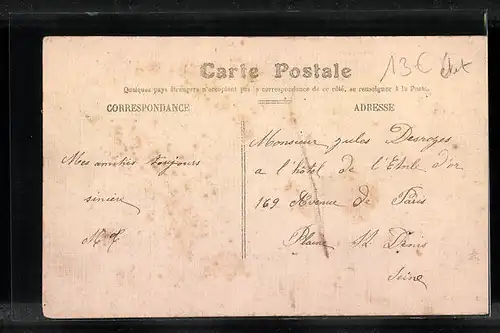 13€
Carte Postale
Quelques pays étrangers n'acceptent pas la correspondance de ce côté, se renseigner à la Poste.
CORRESPONDANCE
Mes amitiés toujours
sincère
ADRESSE
Monsieur Jules Desroges
a l'hôtel de l'Etoile d'or
169 Avenue de Paris
Plaine St Denis
Seine